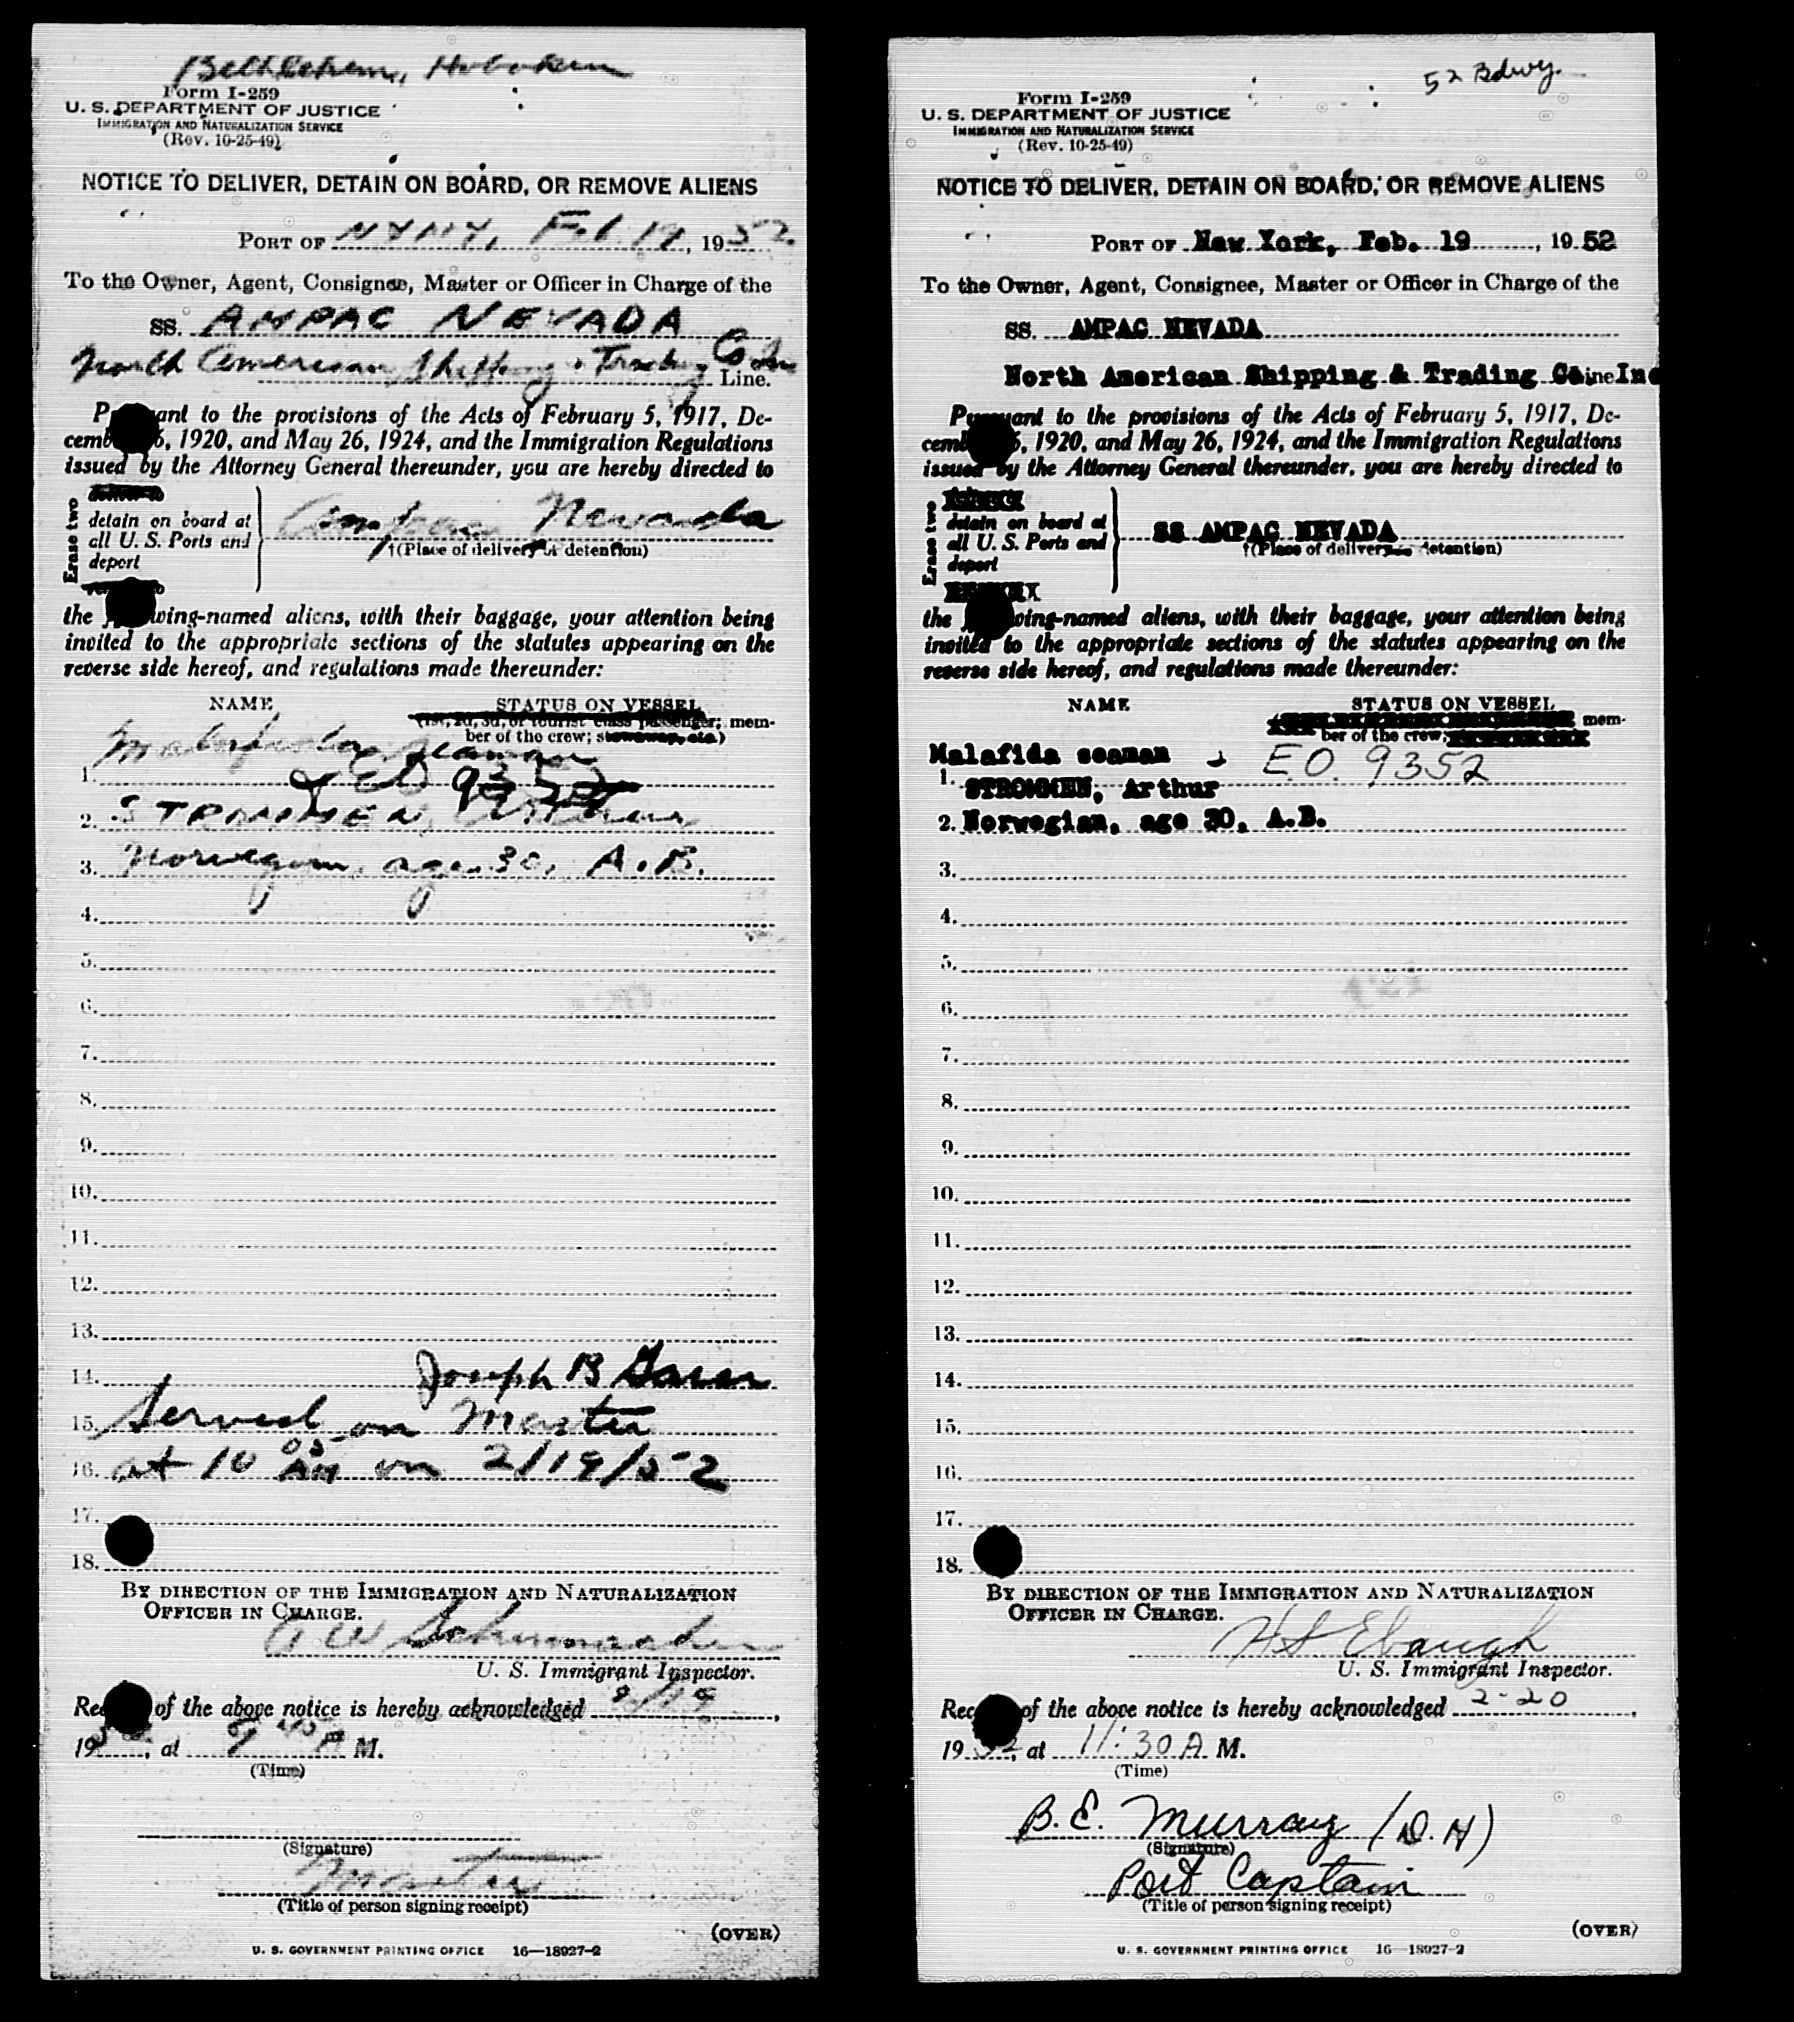 Bethlehem, Hoboken
Form I-259
U. S. DEPARTMENT OF JUSTICE
IMMIGRATION AND NATURALIZATION SERVICE
(Rev. 10-25-49)
NOTICE TO DELIVER, DETAIN ON BOARD, OR REMOVE ALIENS
PORT OF NYNY, Feb 19, 1952.
To the Owner, Agent, Consignee, Master or Officer in Charge of the
SS. AMPAC NEVADA
North American Shipping & Trading Co Inc
Line.
Pursuant to the provisions of the Acts of February 5, 1917, De-
cember 26, 1920, and May 26, 1924, and the Immigration Regulations
issued by the Attorney General thereunder, you are hereby directed to
Erase two
detain on board at
all U. S. Ports and
deport
Ampac Nevada
†(Place of delivery or detention)
the following-named aliens, with their baggage, your attention being
invited to the appropriate sections of the statutes appearing on the
reverse side hereof, and regulations made thereunder:
NAME STATUS ON VESSEL
(1st, 2d, 3d, or tourist class passenger; mem-
ber of the crew; stowaway, etc.)
Malafida seaman
1. EO 9352
2. STROMMEN, Arthur
3. Norwegian, age 30, A.B.
4.
5.
6.
7.
8.
9.
10.
11.
12.
13.
14. Joseph B
15. Served on Master
16. at 10 05 AM on 2/19/52
17.
18.
BY DIRECTION OF THE IMMIGRATION AND NATURALIZATION
OFFICER IN CHARGE.
A W Schumacher
U. S. Immigrant Inspector.
Receipt of the above notice is hereby acknowledged 2/19,
1952, at 9 45 A M.
(Time)
(Signature)
Master
(Title of person signing receipt)
(OVER)
U. S. GOVERNMENT PRINTING OFFICE 16—18927-2
52 Bdwy.
Form I-259
U. S. DEPARTMENT OF JUSTICE
IMMIGRATION AND NATURALIZATION SERVICE
(Rev. 10-25-49)
NOTICE TO DELIVER, DETAIN ON BOARD, OR REMOVE ALIENS
PORT OF New York, Feb. 19, 1952
To the Owner, Agent, Consignee, Master or Officer in Charge of the
SS. AMPAC NEVADA
North American Shipping & Trading Co. Line Inc
Pursuant to the provisions of the Acts of February 5, 1917, De-
cember 26, 1920, and May 26, 1924, and the Immigration Regulations
issued by the Attorney General thereunder, you are hereby directed to
Erase two
detain on board at
all U. S. Ports and
deport
SS AMPAC NEVADA
†(Place of delivery detention)
the following-named aliens, with their baggage, your attention being
invited to the appropriate sections of the statutes appearing on the
reverse side hereof, and regulations made thereunder:
NAME STATUS ON VESSEL
mem-
ber of the crew;
Malafida seaman E.O. 9352
1. STROMMEN, Arthur
2. Norwegian, age 30, A.B.
3.
4.
5.
6.
7.
8.
9.
10.
11.
12.
13.
14.
15.
16.
17.
18.
BY DIRECTION OF THE IMMIGRATION AND NATURALIZATION
OFFICER IN CHARGE.
H S Ebaugh
U. S. Immigrant Inspector.
Receipt of the above notice is hereby acknowledged 2-20,
1952, at 11:30 A M.
(Time)
B. E. Murray (D. H)
(Signature)
Port Captain
(Title of person signing receipt)
(OVER)
U. S. GOVERNMENT PRINTING OFFICE 16—18927-2